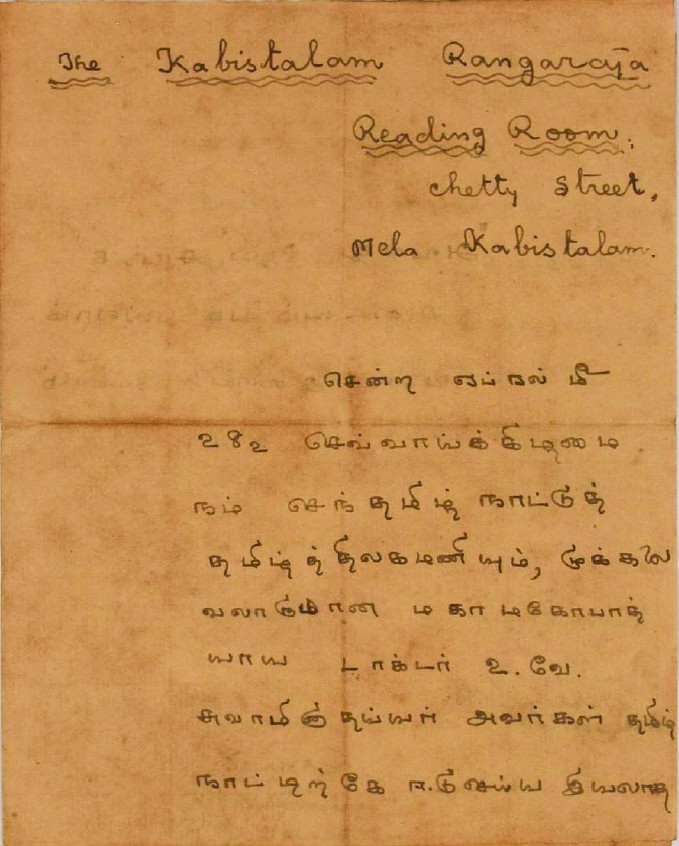 The Kabistalam Rangaraja
Reading Room,
chetty Street,
Mela Kabistalam.
சென்ற ஏப்ரல் மீ
28உ செவ்வாய்க்கிழமை
நம் செந்தமிழ் நாட்டுத்
தமிழ்த்திலகமணியும், முக்கலை
வலாளுமான மகாமகோபாத்
யாய டாக்டர் உ.வே.
சுவாமிநாதய்யர் அவர்கள் தமிழ்
நாட்டிற்கே ஈடுசெய்ய இயலாத